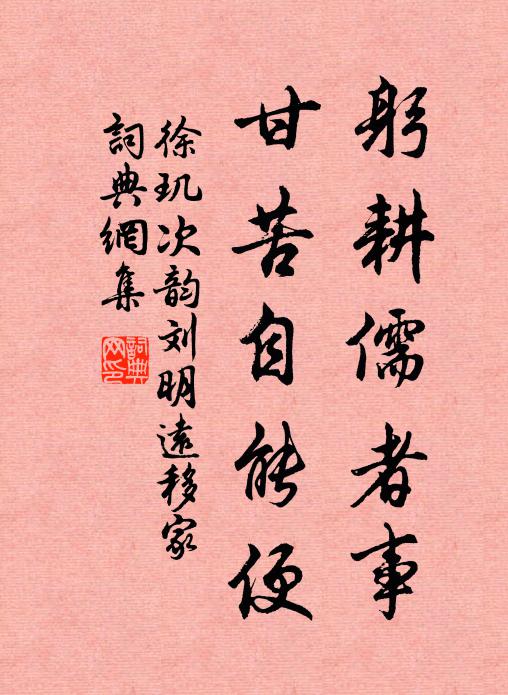 躬耕儒者事
甘苦自能便
徐玑次韵刘明遠移家
詞典網集
詞典网印